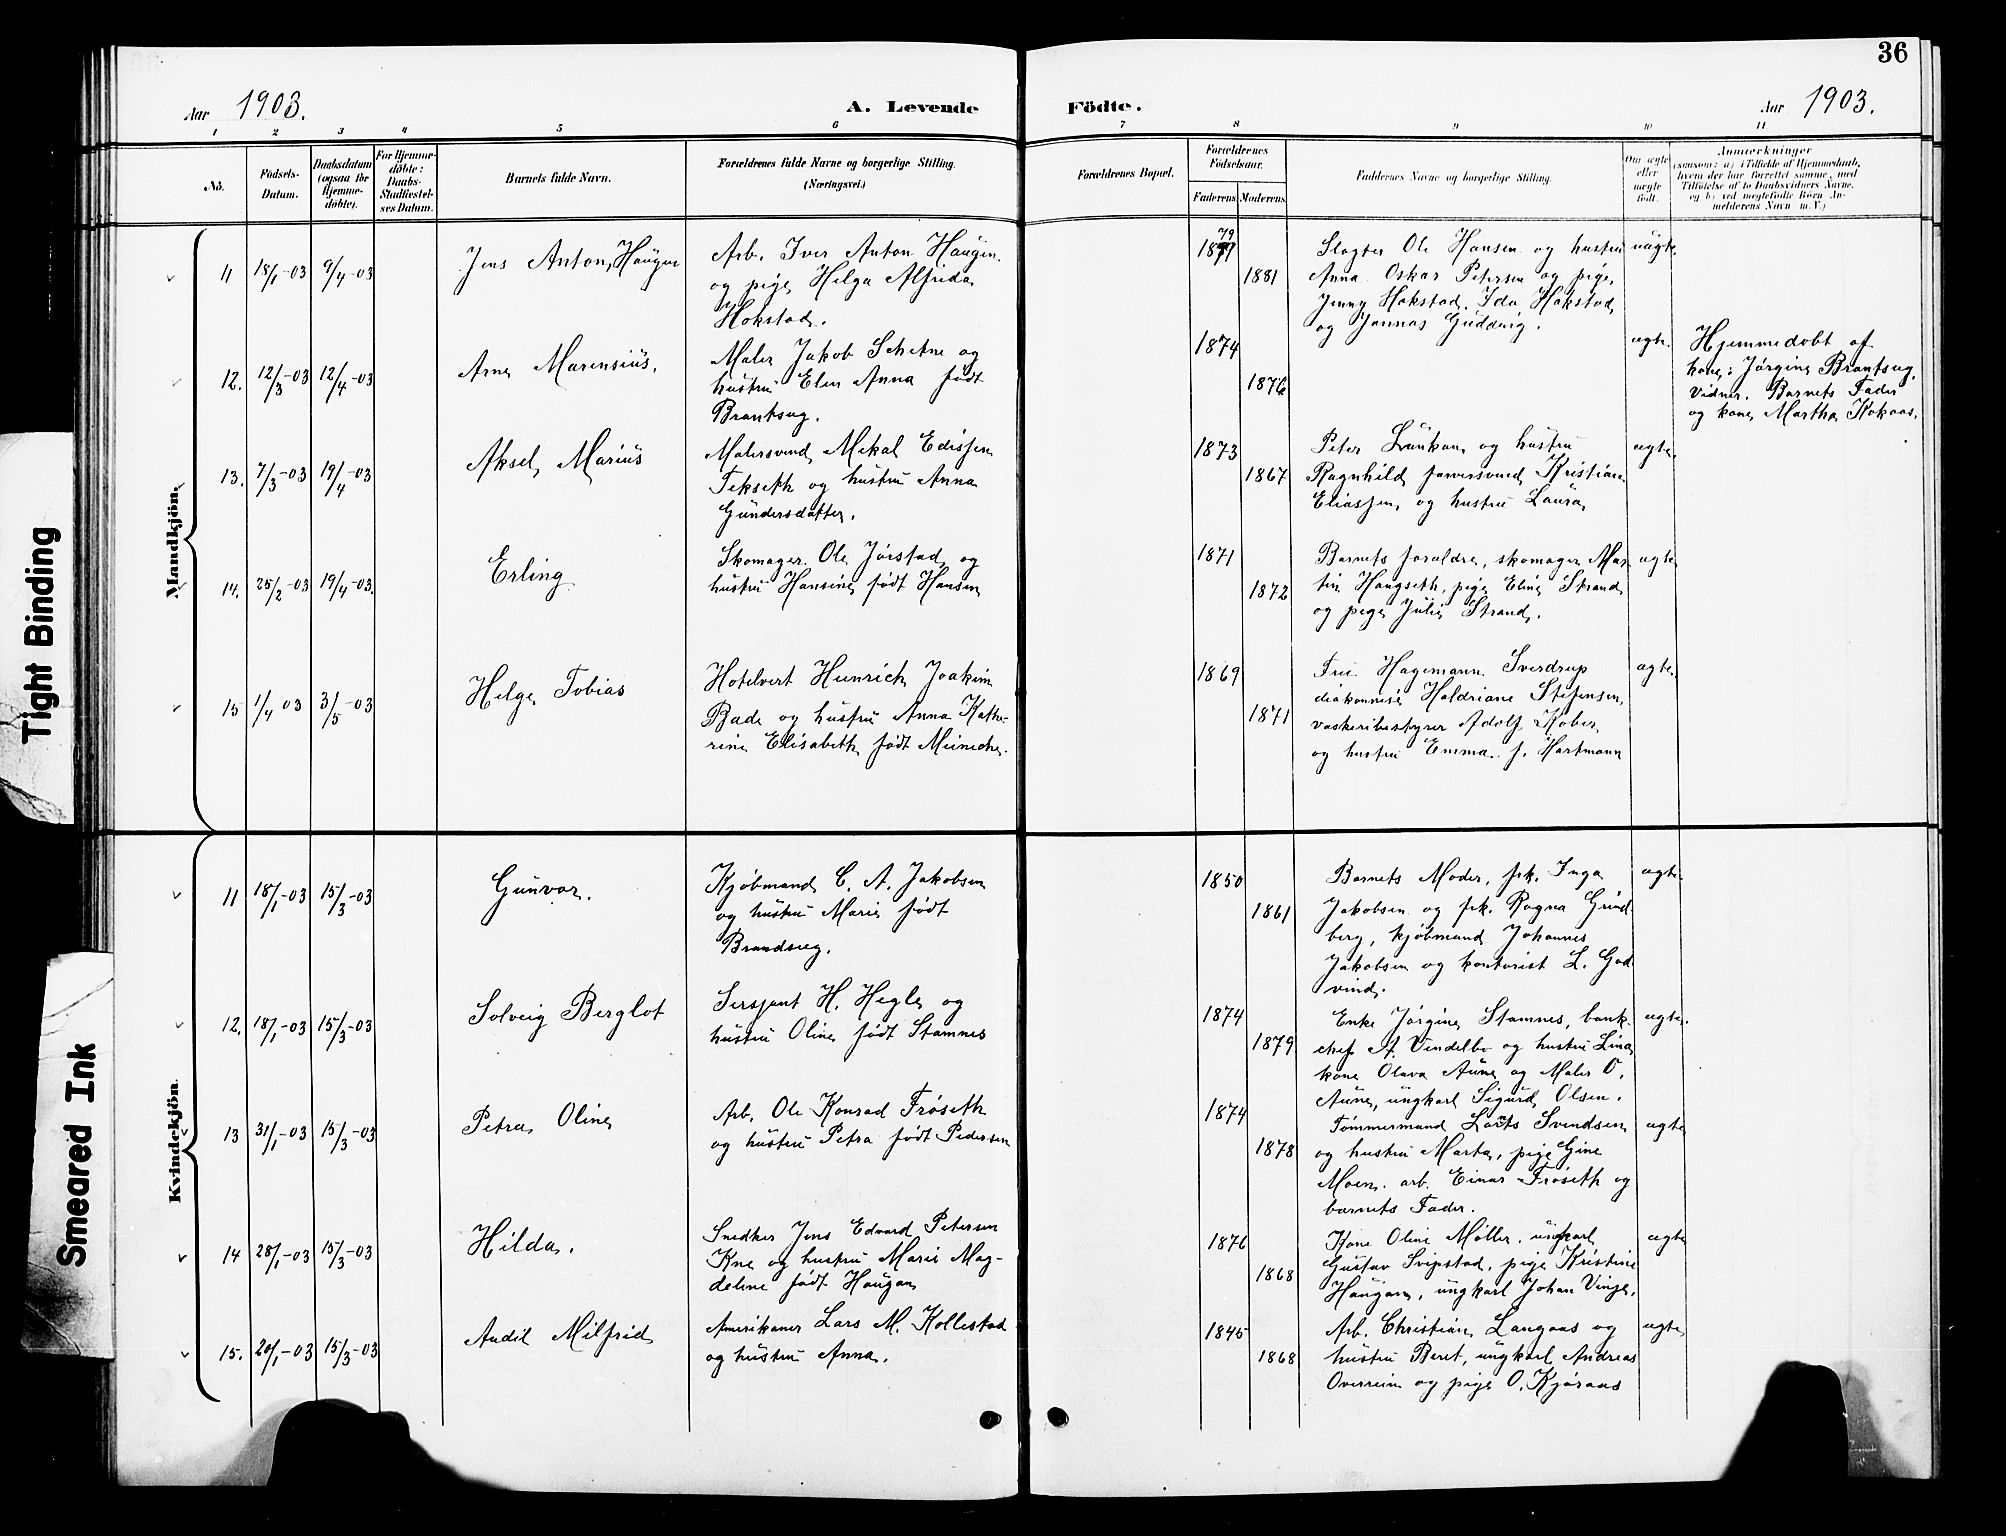 36
Aar 1903.
A. Levende Födte.
Aar 1903.
1 2 3 4 5 6 7 8 9 10 11
No.
Födsels-
Datum.
Daabsdatum
(ogsaa for
Hjemme-
döbte).
For Hjemme-
döbte:
Daabs-
Stadfæstel-
ses Datum.
Barnets fulde Navn.
Forældrenes fulde Navne og borgerlige Stilling.
(Næringsvei.)
Forældrenes Bopæl.
Forældrenes
Födselsaar.
Faderens Moderens
Faddernes Navne og borgerlige Stilling.
Om ægte
eller
uægte
født.
Anmærkninger
(saasom: a) i Tilfælde af Hjemmedaab,
hvem der har forrettet samme, med
Tilföielse af to Daabsvidners Navne,
og b) ved uægtefödte Börn An-
melderens Navn m.V.)
Mandkjön.
11 18/1-03 9/4-03
Jens Anton, Haugen
Arb. Iver Anton Haugen
og pige Helga Alfrida
Hokstad.
79
1881
Slagter Ole Hansen og hustru
Anna Oskar Petersen og pige
Jenny Hokstad. Ida Hokstad
og Jonnas Guddvig.
uægte.
12. 12/3-03 12/4-03
Arne Marensius.
Maler Jakob Schetne og
hustru Elen Anna født
Brantsug.
1874
1876
ægte.
Hjemmedøbt af
kone: Jørgine Brantsug.
Vidner. Barnets Fader
og kone Martha Kokaas.
13. 7/3-03 19/4-03
Aksel Marius
Malersvend Mikal Edissen
Tekseth og hustru Anna
Gundersdatter.
1873
1867
Peter Lunkan og hustru
Ragnhild farversvend Kristian
Eliassen og hustru Laura
ægte
14. 25/2-03 19/4-03.
Erling
Skomager Ole Jørstad og
hustru Hansine født Hansen
1871
1872
Barnets foraldre, skomager Mar
tin Haugseth, pige Eline Strand
og pige Julie Strand.
ægte
15 1/4 03 3/5-03
Helge Tobias
Hotelvert Heinrich Joakim
Bade og hustru Anna Kathe-
rine Elisabeth født Meinche.
1869
1871
Fru Hagemann Sverdrup
diakonnisse Haldriane Stefensen
vaskeribestyrer Adolf Kober
og hustru Emma f. Hartmann
ægte
Kvindekjön.
11 18/1-03 15/3-03
Gunvor.
Kjøbmand C. A. Jakobsen
og hustru Marie født
Brandseg.
1850
1861
Barnets Moder, frk. Inga
Jakobsen og frk. Ragna Grind
berg, kjøbmand Johannes
Jakobsen og kontorist L. God
vind.
ægte
12. 18/1-03 15/3-03
Solveig Berglot
Sersjant H. Hegle og
hustru Oline født Stamnes
1874
1879
Enke Jørgine Stamnes, bank-
chef A. Vendelbo og hustru Lina
kone Olava Aune og Maler O.
Aune, ungkarl Sigurd Olsen.
ægte.
13 31/1-03 15/3-03
Petra Oline
Arb. Ole Konrad Frøseth
og hustru Petra født Pedersen
1874
1878
Tømmermand Lorts Svendsen
og hustru Marta, pige Gine
Moen. arb. Einar Frøseth og
barnets Fader.
ægte
14 28/1-03 15/3-03
Hilda.
Snedker Jens Edvard Petersen
Kne og hustru Marie Mag-
delene født Haugan
1876
1868
Kone Oline Møller, ungkarl
Gustav Svepstad, pige Kristine
Haugan, ungkarl Johan Vinje.
ægte
15. 20/1-03 15/3-03
Audil Milfrid
Amerikaner Lars M. Kollestad
og hustru Anna.
1845
1868
Arb. Christian Langaas og
hustru Beret, ungkarl Andreas
Overrein og pige O. Kjøraas
ægte
Tight Binding
Smeared Ink